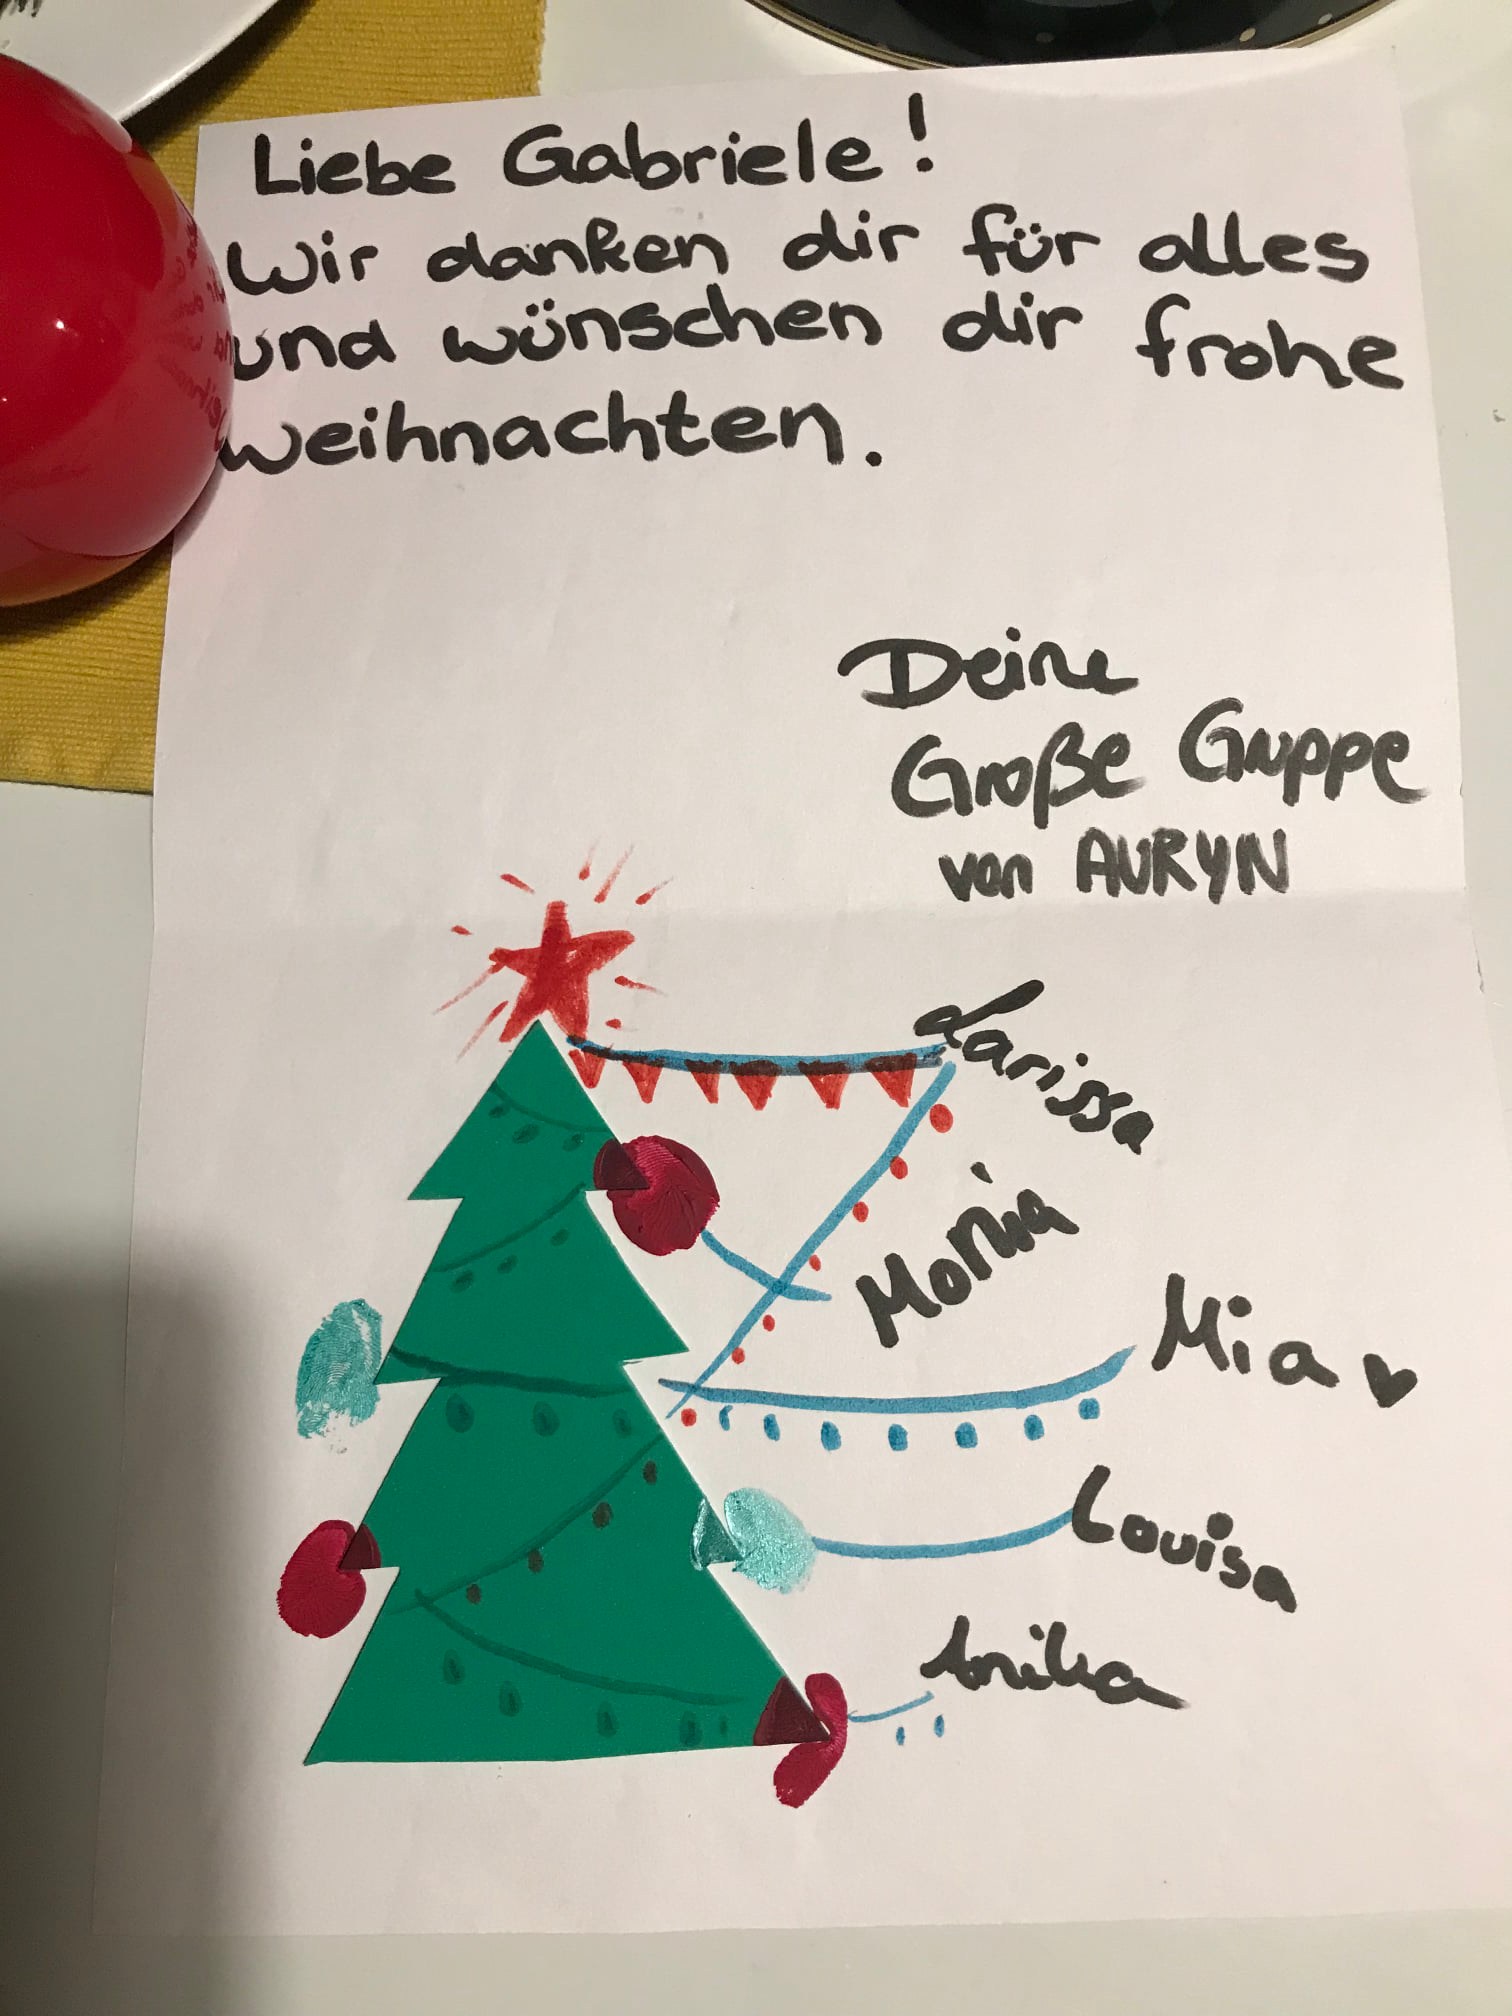 Liebe Gabriele!
Wir danken dir für alles
und wünschen dir frohe
weihnachten.
Deine
Große Gruppe
von AURYN
Larissa
Monia
Mia
Louisa
Anika